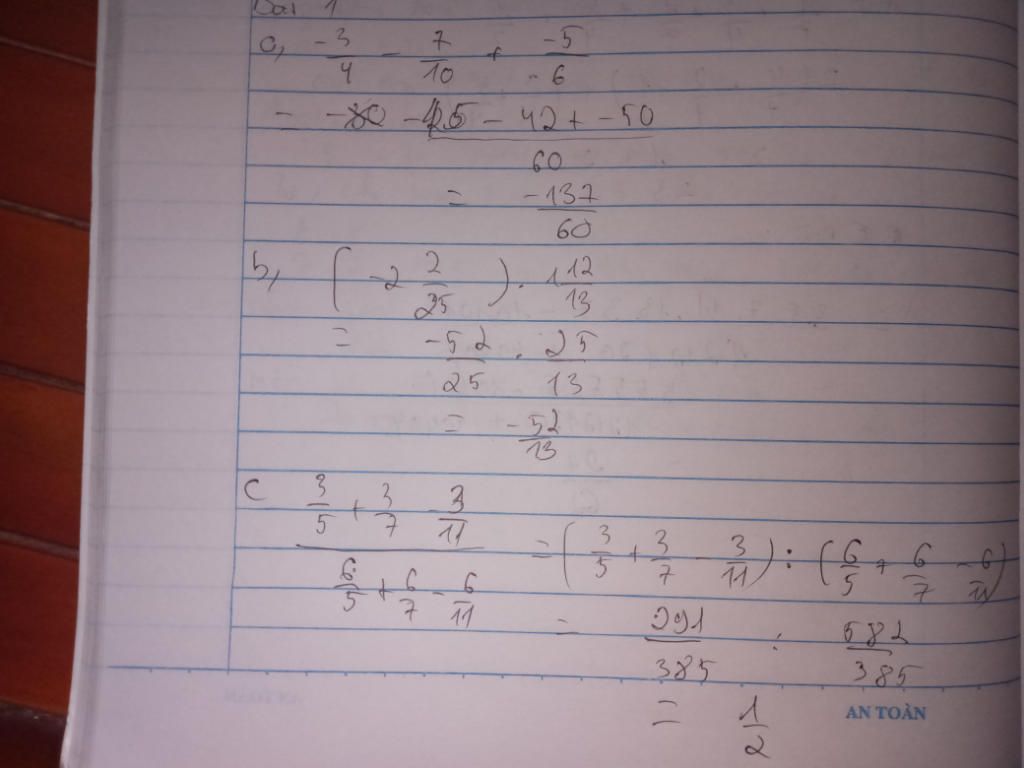 Bài 1
a, -3/4 - 7/10 + -5/6
= -45 - 42 + -50 / 60
= -137/60
b, ( -2 2/25 ) . 1 12/13
= -52/25 . 25/13
= -52/13
c (3/5 + 3/7 - 3/11) / (6/5 + 6/7 - 6/11) = (3/5 + 3/7 - 3/11) : (6/5 + 6/7 - 6/11)
= 291/385 : 582/385
= 1/2
AN TOÀN